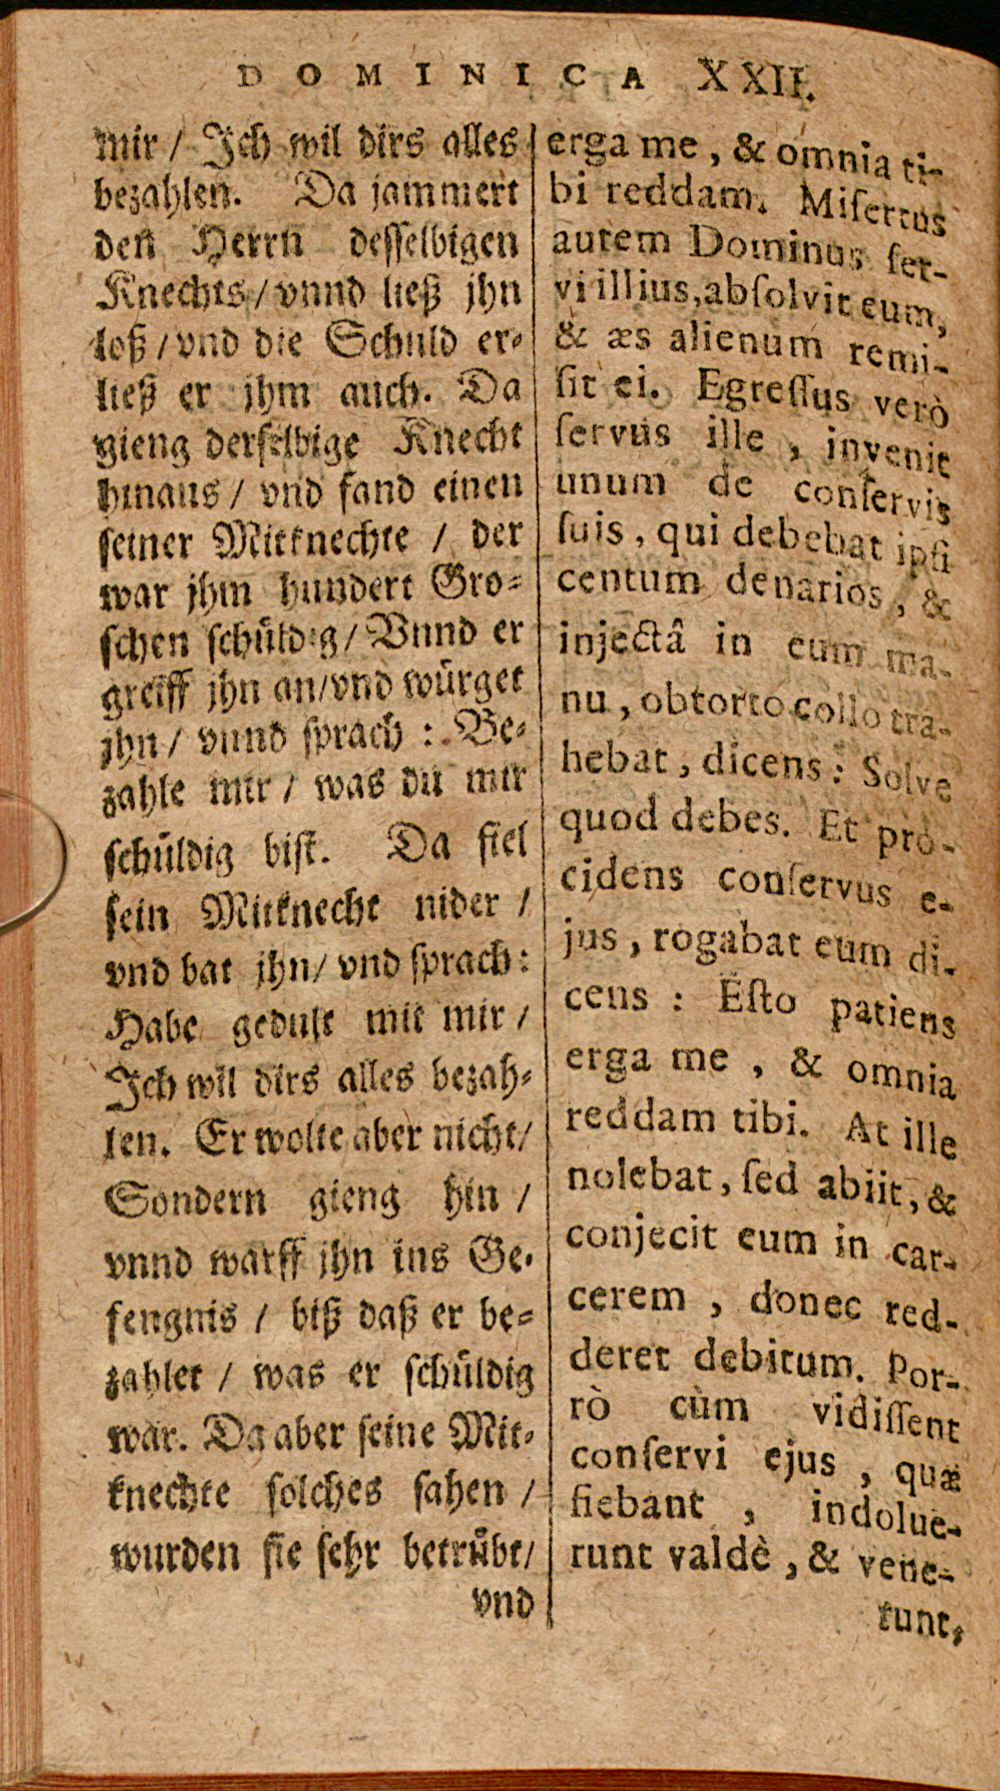 DOMINICA XXII.
mir / Ich wil dirs alles
bezahlen. Da jammert
den Herrn desselbigen
Knechts / vnnd ließ jhn
loß / vnd die Schuld er-
ließ er jhm auch. Da
gieng derselbige Knecht
hinaus / vnd fand einen
seiner Mitknechte / der
war jhm hundert Gro-
schen schüldig / Vnnd er
greiff jhn an / vnd würget
jhn / vnnd sprach : Be-
zahle mir / was du mir
schüldig bist. Da fiel
sein Mitknecht nider /
vnd bat jhn / vnd sprach :
Habe gedult mit mir /
Ich wil dirs alles bezah-
len. Er wolte aber nicht /
Sondern gieng hin /
vnnd warff jhn ins Ge-
fengnis / biß daß er be-
zahlet / was er schüldig
war. Da aber seine Mit-
knechte solches sahen /
wurden sie sehr betrübt /
vnd
erga me , & omnia ti-
bi reddam. Miſertus
autem Dominus ſer-
vi illius, abſolvit eum,
& æs alienum remi-
ſit ei. Egreſſus verò
ſervus ille , invenit
unum de conſervis
ſuis , qui debebat ipſi
centum denarios , &
injectâ in eum ma-
nu , obtorto collo tra-
hebat , dicens : Solve
quod debes. Et pro-
cidens conſervus e-
jus , rogabat eum di-
cens : Eſto patiens
erga me , & omnia
reddam tibi. At ille
nolebat , ſed abiit , &
conjecit eum in car-
cerem , donec red-
deret debitum. Por-
rò cùm vidiſſent
conſervi ejus , quæ
fiebant , indolue-
runt valdè , & vene-
runt,